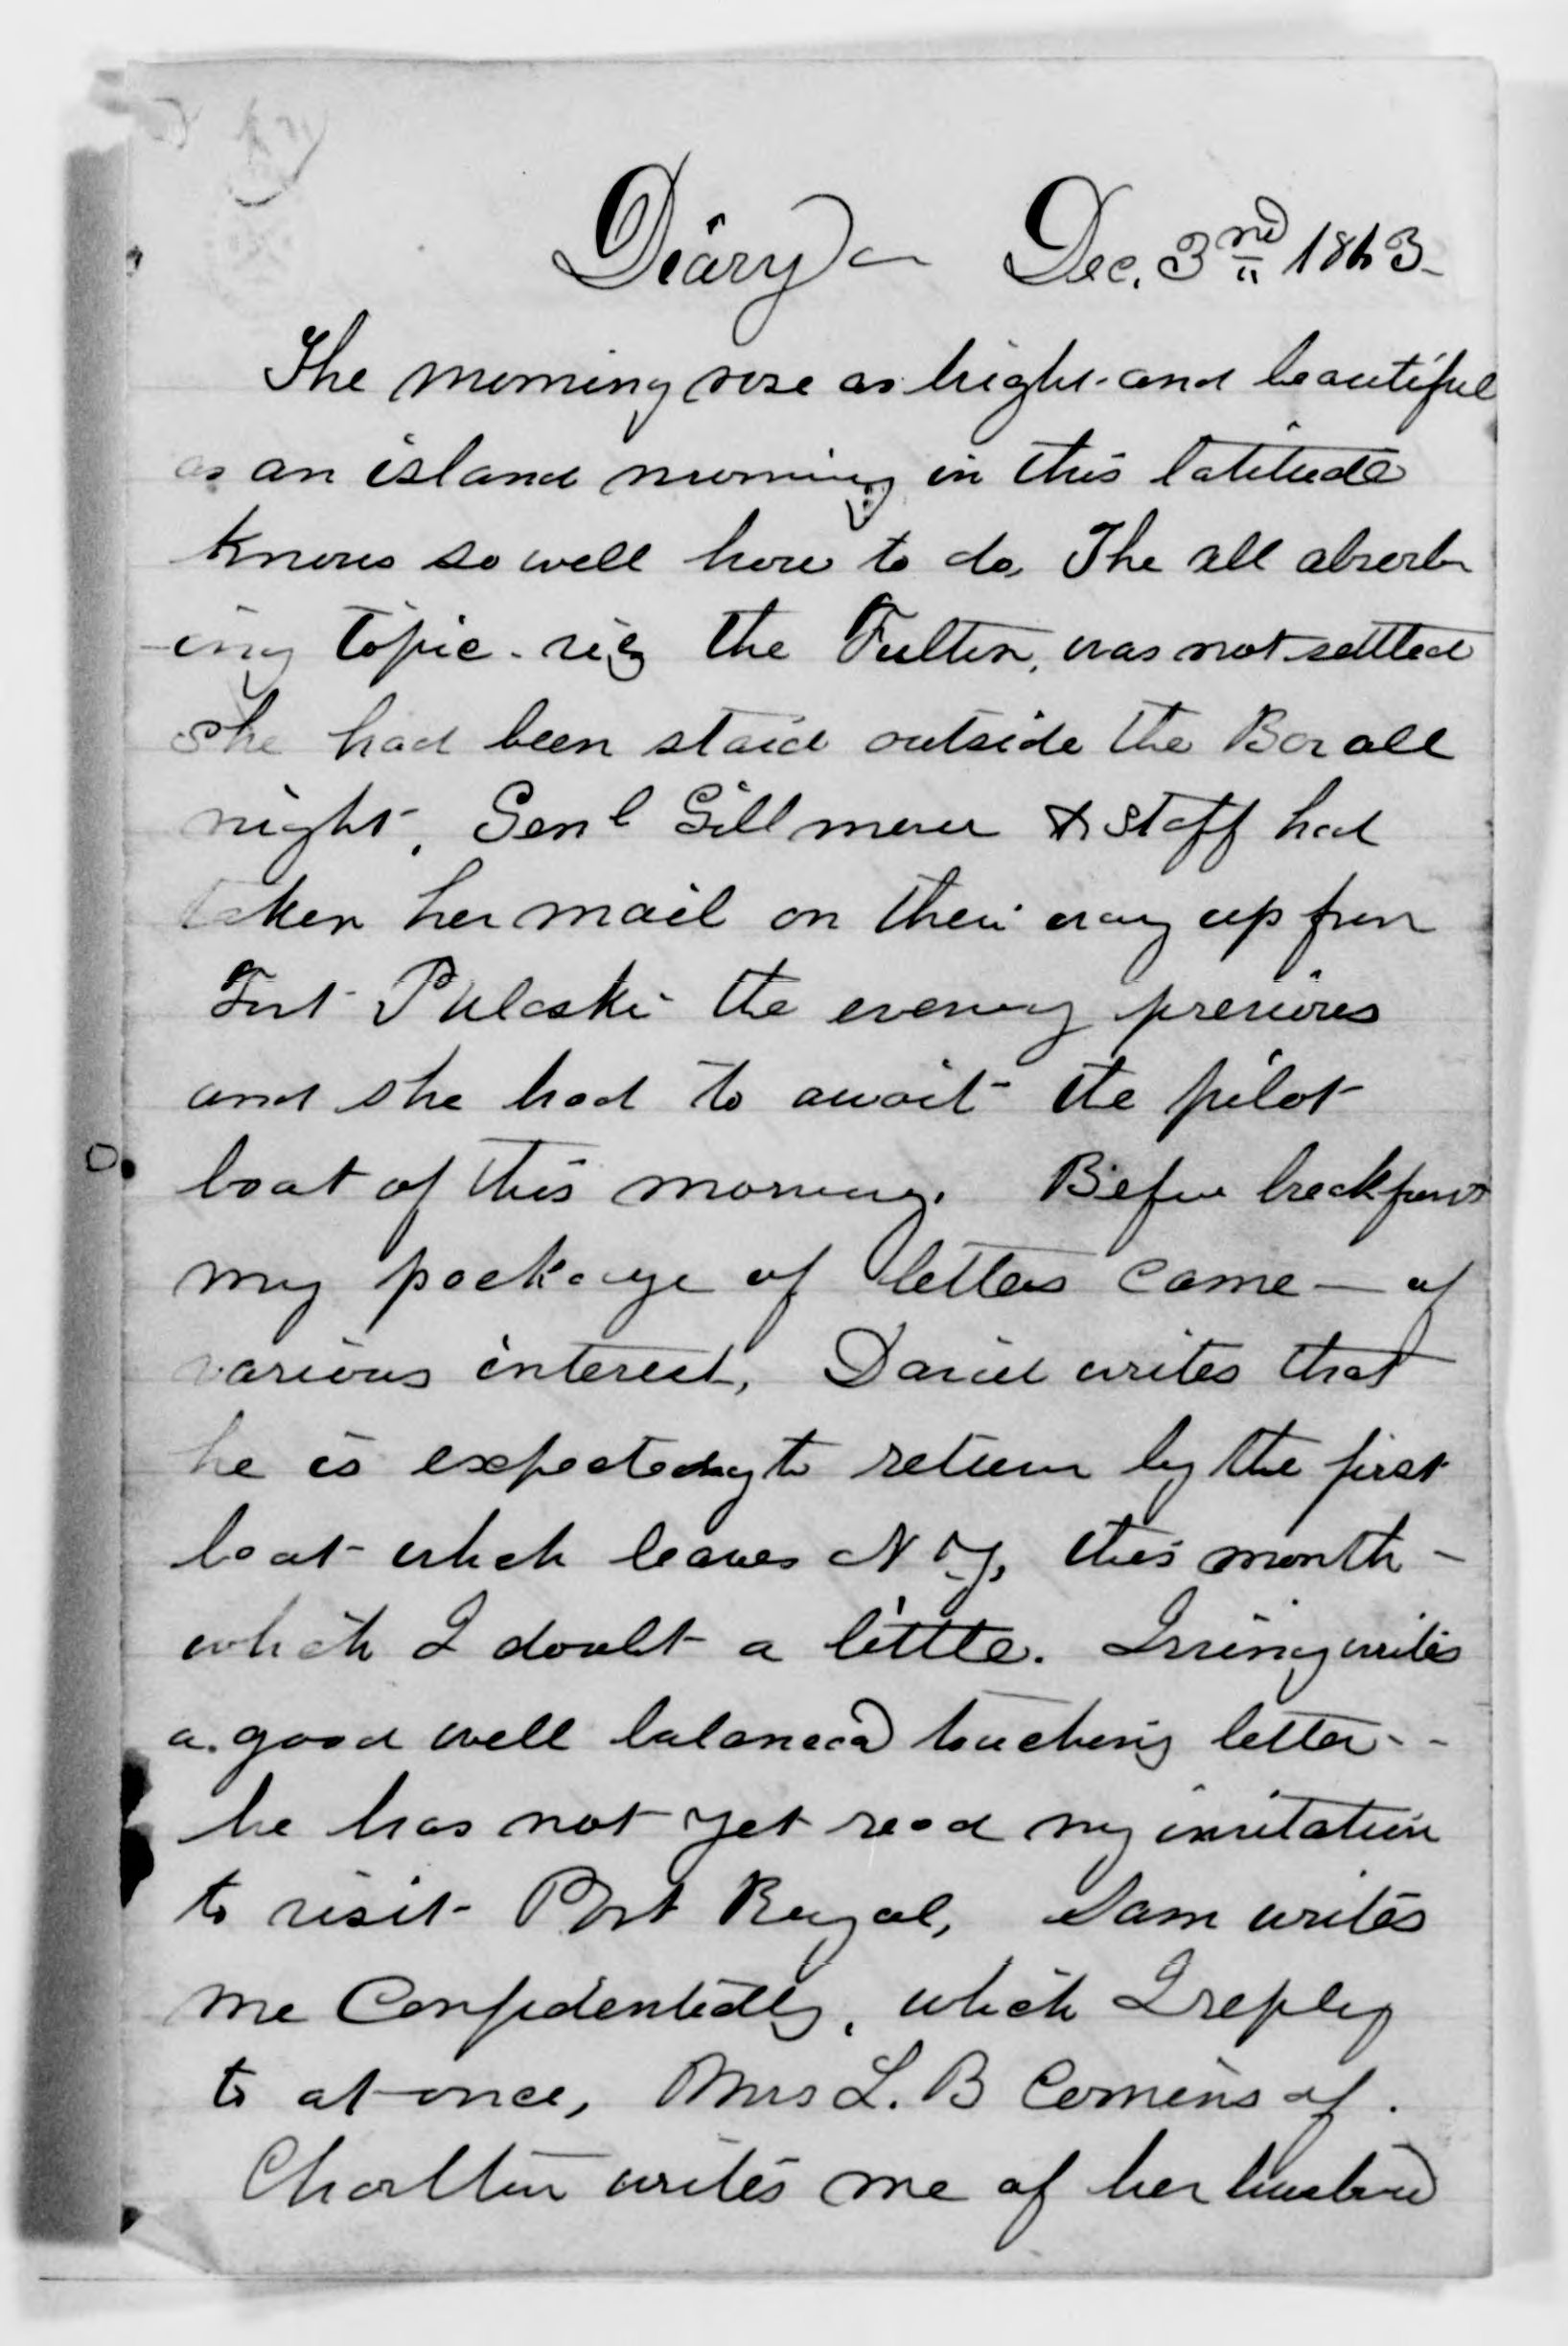 Diary - Dec. 3rd 1863-
The morning rose as bright and beautiful
as an island morning in this latitude
knows so well how to do, The all absorb
-ing topic - viz the Fulton, was not settled
she had been staid outside the Bar all
night, Genl Gillmore & staff had
taken her mail on their way up from
Fort Pulaski the evening previous
and she had to await the pilot
boat of this morning. Before breakfast
my package of letters came — of
various interest, David writes that
he is expected to return by the first
boat which leaves N.Y, this month -
which I doubt a little. Irving writes
a good well balanced touching letter - -
he has not yet read my invitation
to visit Port Royal, Sam writes
me Confidentially, which I reply
to at once, Mrs L. B Comins of.
Charlton writes me of her husband